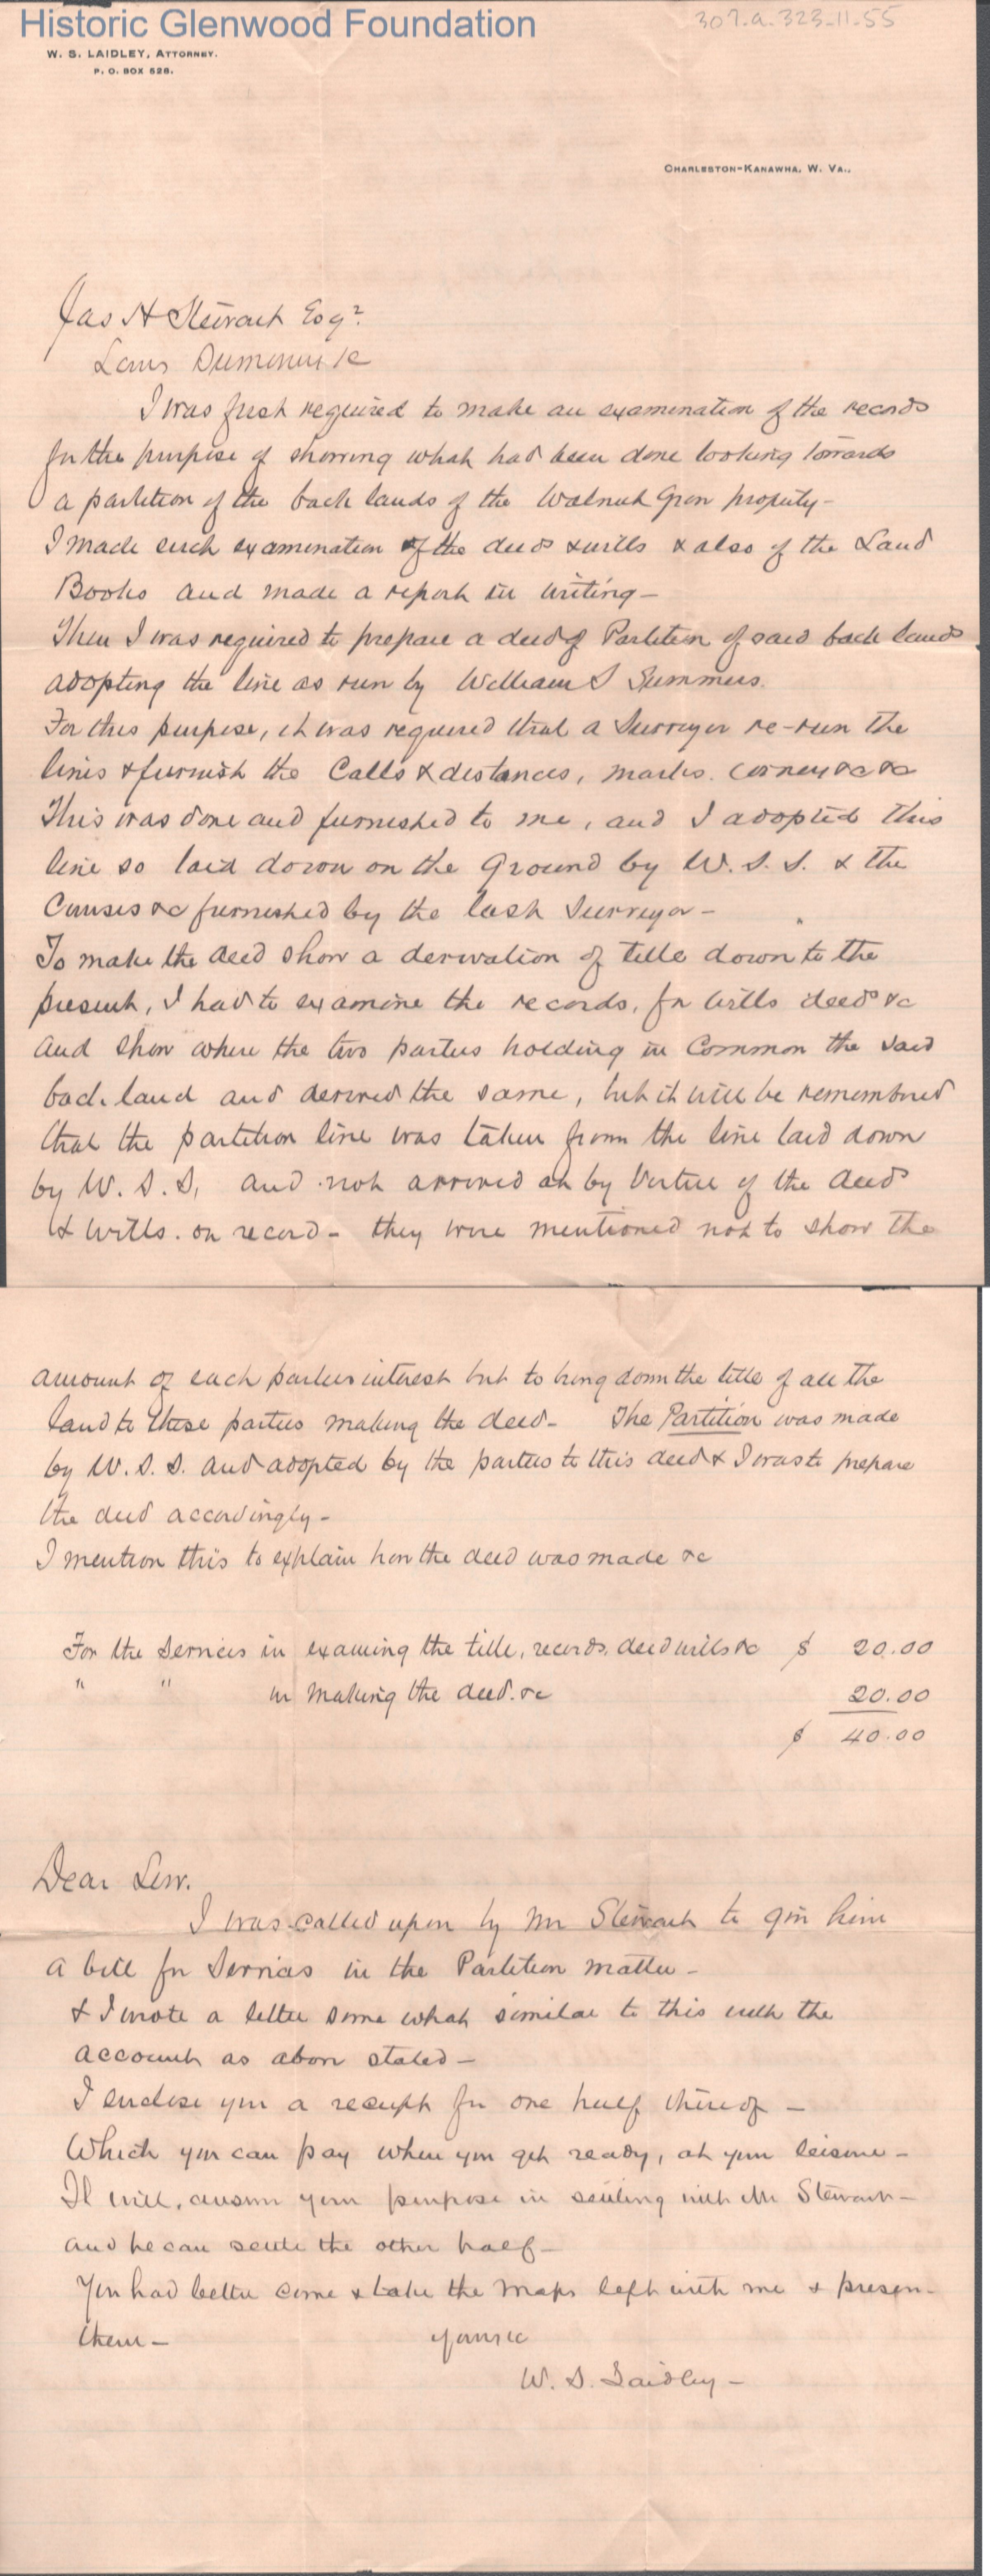 Historic Glenwood Foundation
307.a.323-11-55
W. S. LAIDLEY, ATTORNEY.
P. O. BOX 528.
CHARLESTON-KANAWHA, W. VA.,
Jas H Stewart Esqr.
Louis
I was first required to make an examination of the records
for the purpose of showing what had been done looking towards
a partition of the back lands of the Walnut Grove property-
I made such examination of the deeds & wills & also of the Land
Books and made a report in writing-
Then I was required to prepare a deed of Partition of said back lands
adopting the line as run by William S Summers.
For this purpose, it was required that a Surveyor re-run the
lines & furnish the Calls & distances, marks. corners &c &c
This was done and furnished to me, and I adopted this
line so laid down on the Ground by W. S. S. & the
Courses &c furnished by the last Surveyor-
To make the deed show a derivation of title down to the
present, I had to examine the records, for wills deeds &c
and show where the two parties holding in Common the said
back land and derived the same, but it will be remembered
that the partition line was taken from the line laid down
by W. S. S, and not arrived at by Virtue of the deeds
& wills. on record- they were mentioned not to show the
amount of each parties interest but to bring down the title of all the
land to these parties making the deed- The Partition was made
by W. S. S. and adopted by the parties to this deed & I was to prepare
the deed accordingly-
I mention this to explain how the deed was made &c
For the Services in examing the title, records, deed wills &c $ 20.00
" " in making the deed. &c 20.00
$ 40.00
Dear Lew.
I was called upon by Mr Stewart to give him
a bill for Services in the Partition matter-
& I wrote a letter some what similar to this with the
account as above stated-
I enclose you a receipt for one half thereof-
Which you can pay when you get ready, at your leisure-
It will, answer your purpose in settling with Mr Stewart-
and he can settle the other half-
You had better come & take the maps left with me & preserve
them- yours &c
W. S. Laidley-